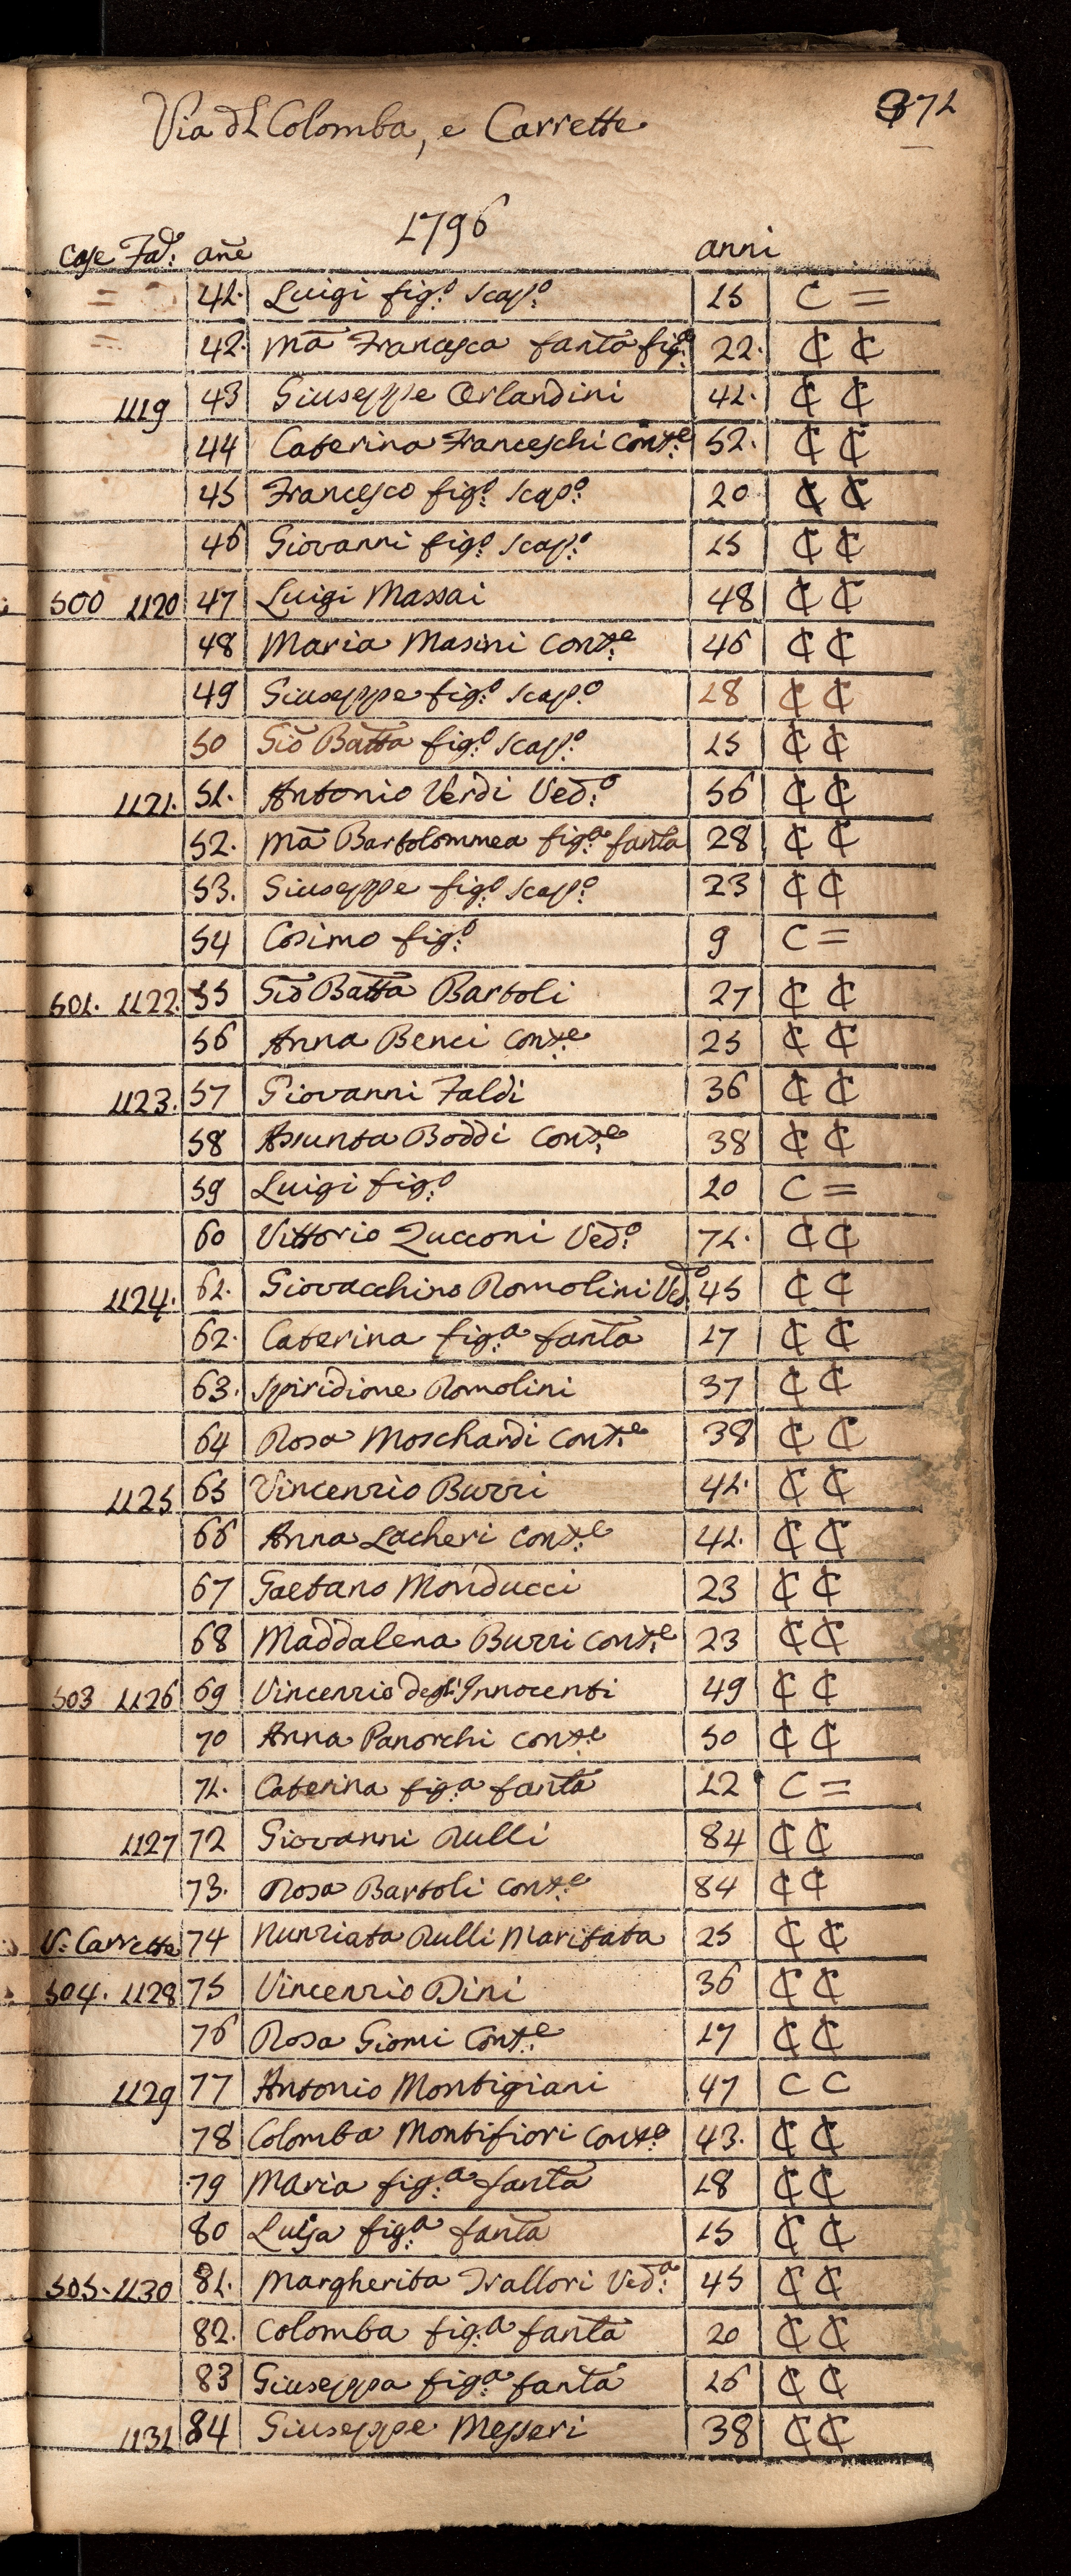 371
Via dl Colomba, e Carrette
1796
Case Fad: añe anni
= 41. Luigi fig.o scap.o 15 C =
= 42. Mā Francesca fanta fig.a 22. ₵ ₵
1119 43 Giuseppe Orlandini 41. ₵ ₵
44 Caterina Franceschi Cons.e 52. ₵ ₵
45 Francesco fig.o scap.o 20 ₵ ₵
46 Giovanni fig.o scap.o 15 ₵ ₵
500 1120 47 Luigi Massai 48 ₵ ₵
48 Maria Masini Cons.e 46 ₵ ₵
49 Giuseppe fig.o scap.o 18 ₵ ₵
50 Giō Batta fig.o scap.o 15 ₵ ₵
1121. 51. Antonio Verdi Ved.o 56 ₵ ₵
52. Mā Bartolommea fig.a fanta 28 ₵ ₵
53. Giuseppe fig.o scap.o 23 ₵ ₵
54 Cosimo fig.o 9 C =
501. 1122. 55 Giō Batta Bartoli 27 ₵ ₵
56 Anna Benci Cons.e 25 ₵ ₵
1123. 57 Giovanni Faldi 36 ₵ ₵
58 Assunta Boddi Cons.e 38 ₵ ₵
59 Luigi fig.o 10 C =
60 Vittorio Zucconi Ved.o 71. ₵ ₵
1124. 61. Giovacchino Romolini Ved.o 45 ₵ ₵
62. Caterina fig.a fanta 17 ₵ ₵
63. Spiridione Romolini 37 ₵ ₵
64 Rosa Moschardi Cons.e 38 ₵ ₵
1125 65 Vincenzio Burri 41. ₵ ₵
66 Anna Lacheri Cons.e 41. ₵ ₵
67 Gaetano Monducci 23 ₵ ₵
68 Maddalena Burri Cons.e 23 ₵ ₵
503 1126 69 Vincenzio degl'Innocenti 49 ₵ ₵
70 Anna Panorchi Cons.e 50 ₵ ₵
71. Caterina fig.a fanta 12 C =
1127 72 Giovanni Rulli 84 ₵ ₵
73. Rosa Bartoli Cons.e 84 ₵ ₵
V: Carrette 74 Nunziata Rulli Maritata 25 ₵ ₵
504. 1128 75 Vincenzio Dini 36 ₵ ₵
76 Rosa Giomi Cons.e 17 ₵ ₵
1129 77 Antonio Montigiani 47 C C
78 Colomba Montifiori Cons.e 43. ₵ ₵
79 Maria fig.a fanta 18 ₵ ₵
80 Luisa fig.a fanta 15 ₵ ₵
505. 1130 81. Margherita Trallori Ved.a 45 ₵ ₵
82. Colomba fig.a fanta 20 ₵ ₵
83 Giuseppa fig.a fanta 16 ₵ ₵
1131 84 Giuseppe Messeri 38 ₵ ₵